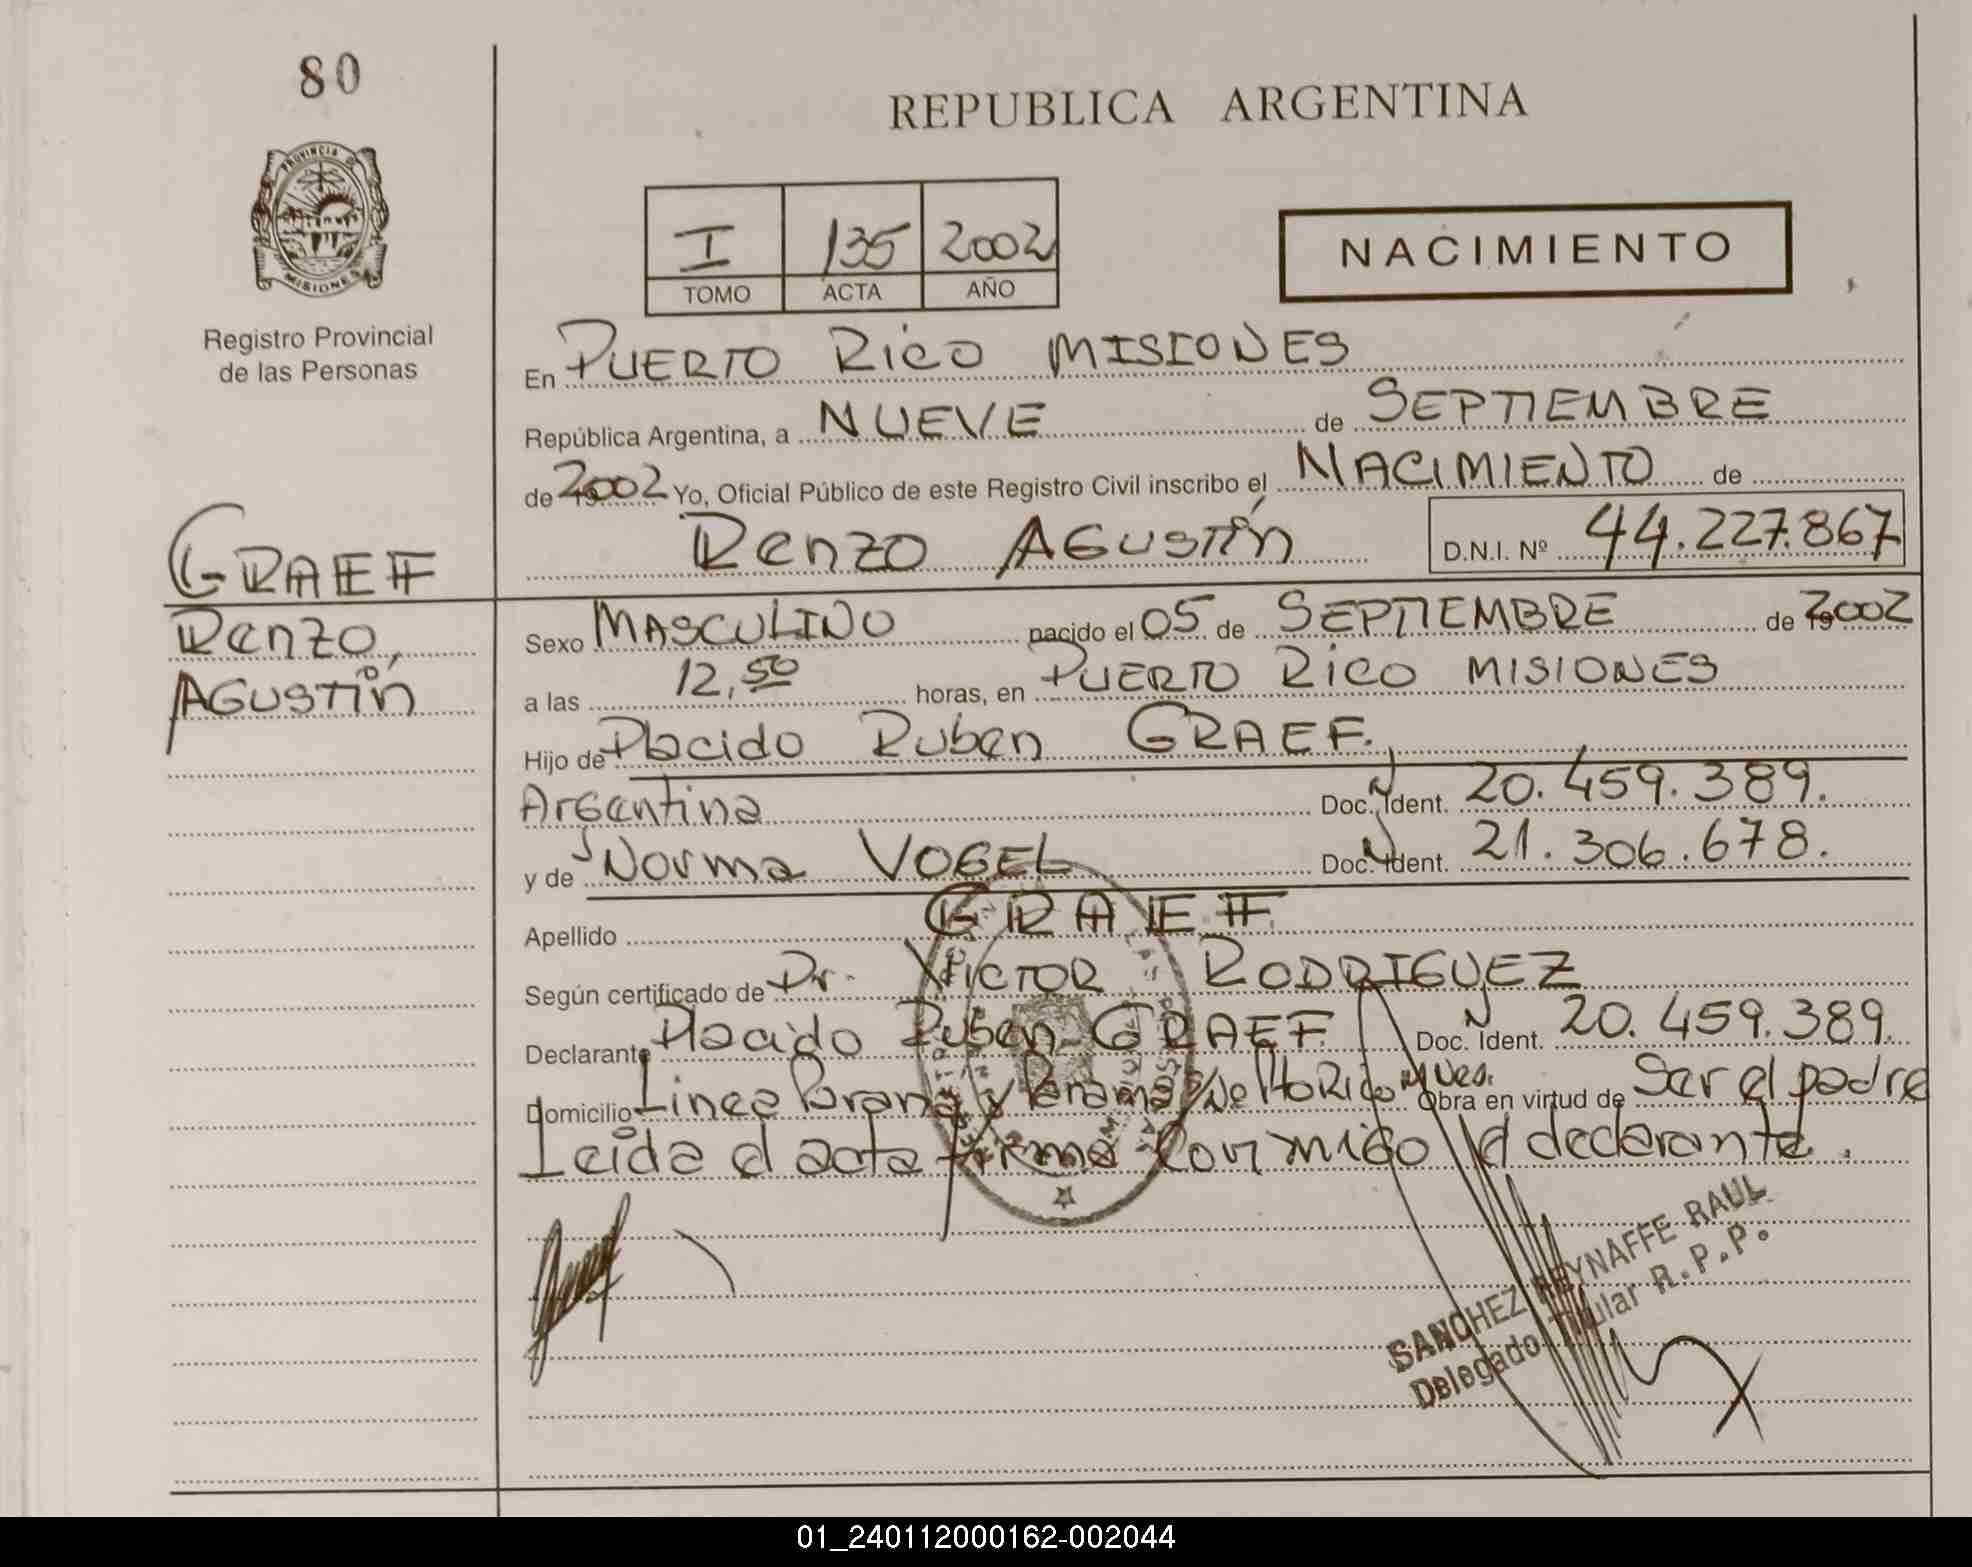 80
REPUBLICA ARGENTINA
PROVINCIA DE
MISIONES
I 135 2002
TOMO ACTA AÑO
NACIMIENTO
Registro Provincial
de las Personas
En PUERTO RICO MISIONES
República Argentina, a NUEVE de SEPTIEMBRE
de 2002 Yo, Oficial Público de este Registro Civil inscribo el NACIMIENTO de
Renzo AGUSTÍN D.N.I. Nº 44.227.867
GRAEF
Renzo,
AGUSTÍN
Sexo MASCULINO nacido el 05 de SEPTIEMBRE de 2002
a las 12,50 horas, en PUERTO RICO MISIONES
Hijo de Placido Ruben GRAEF.
Argentina Doc. Ident. 20.459.389.
y de Norma VOGEL Doc. Ident. 21.306.678.
Apellido GRAEF
Según certificado de Dr. VICTOR RODRIGUEZ
Declarante Placido Ruben GRAEF Doc. Ident. 20.459.389.
Domicilio Linea Parana y Panama Obra en virtud de Ser el padre
Leida el acta firma conmigo el declarante.
SANCHEZ REYNAFFE RAUL
Delegado Titular R.P.P.
01_240112000162-002044